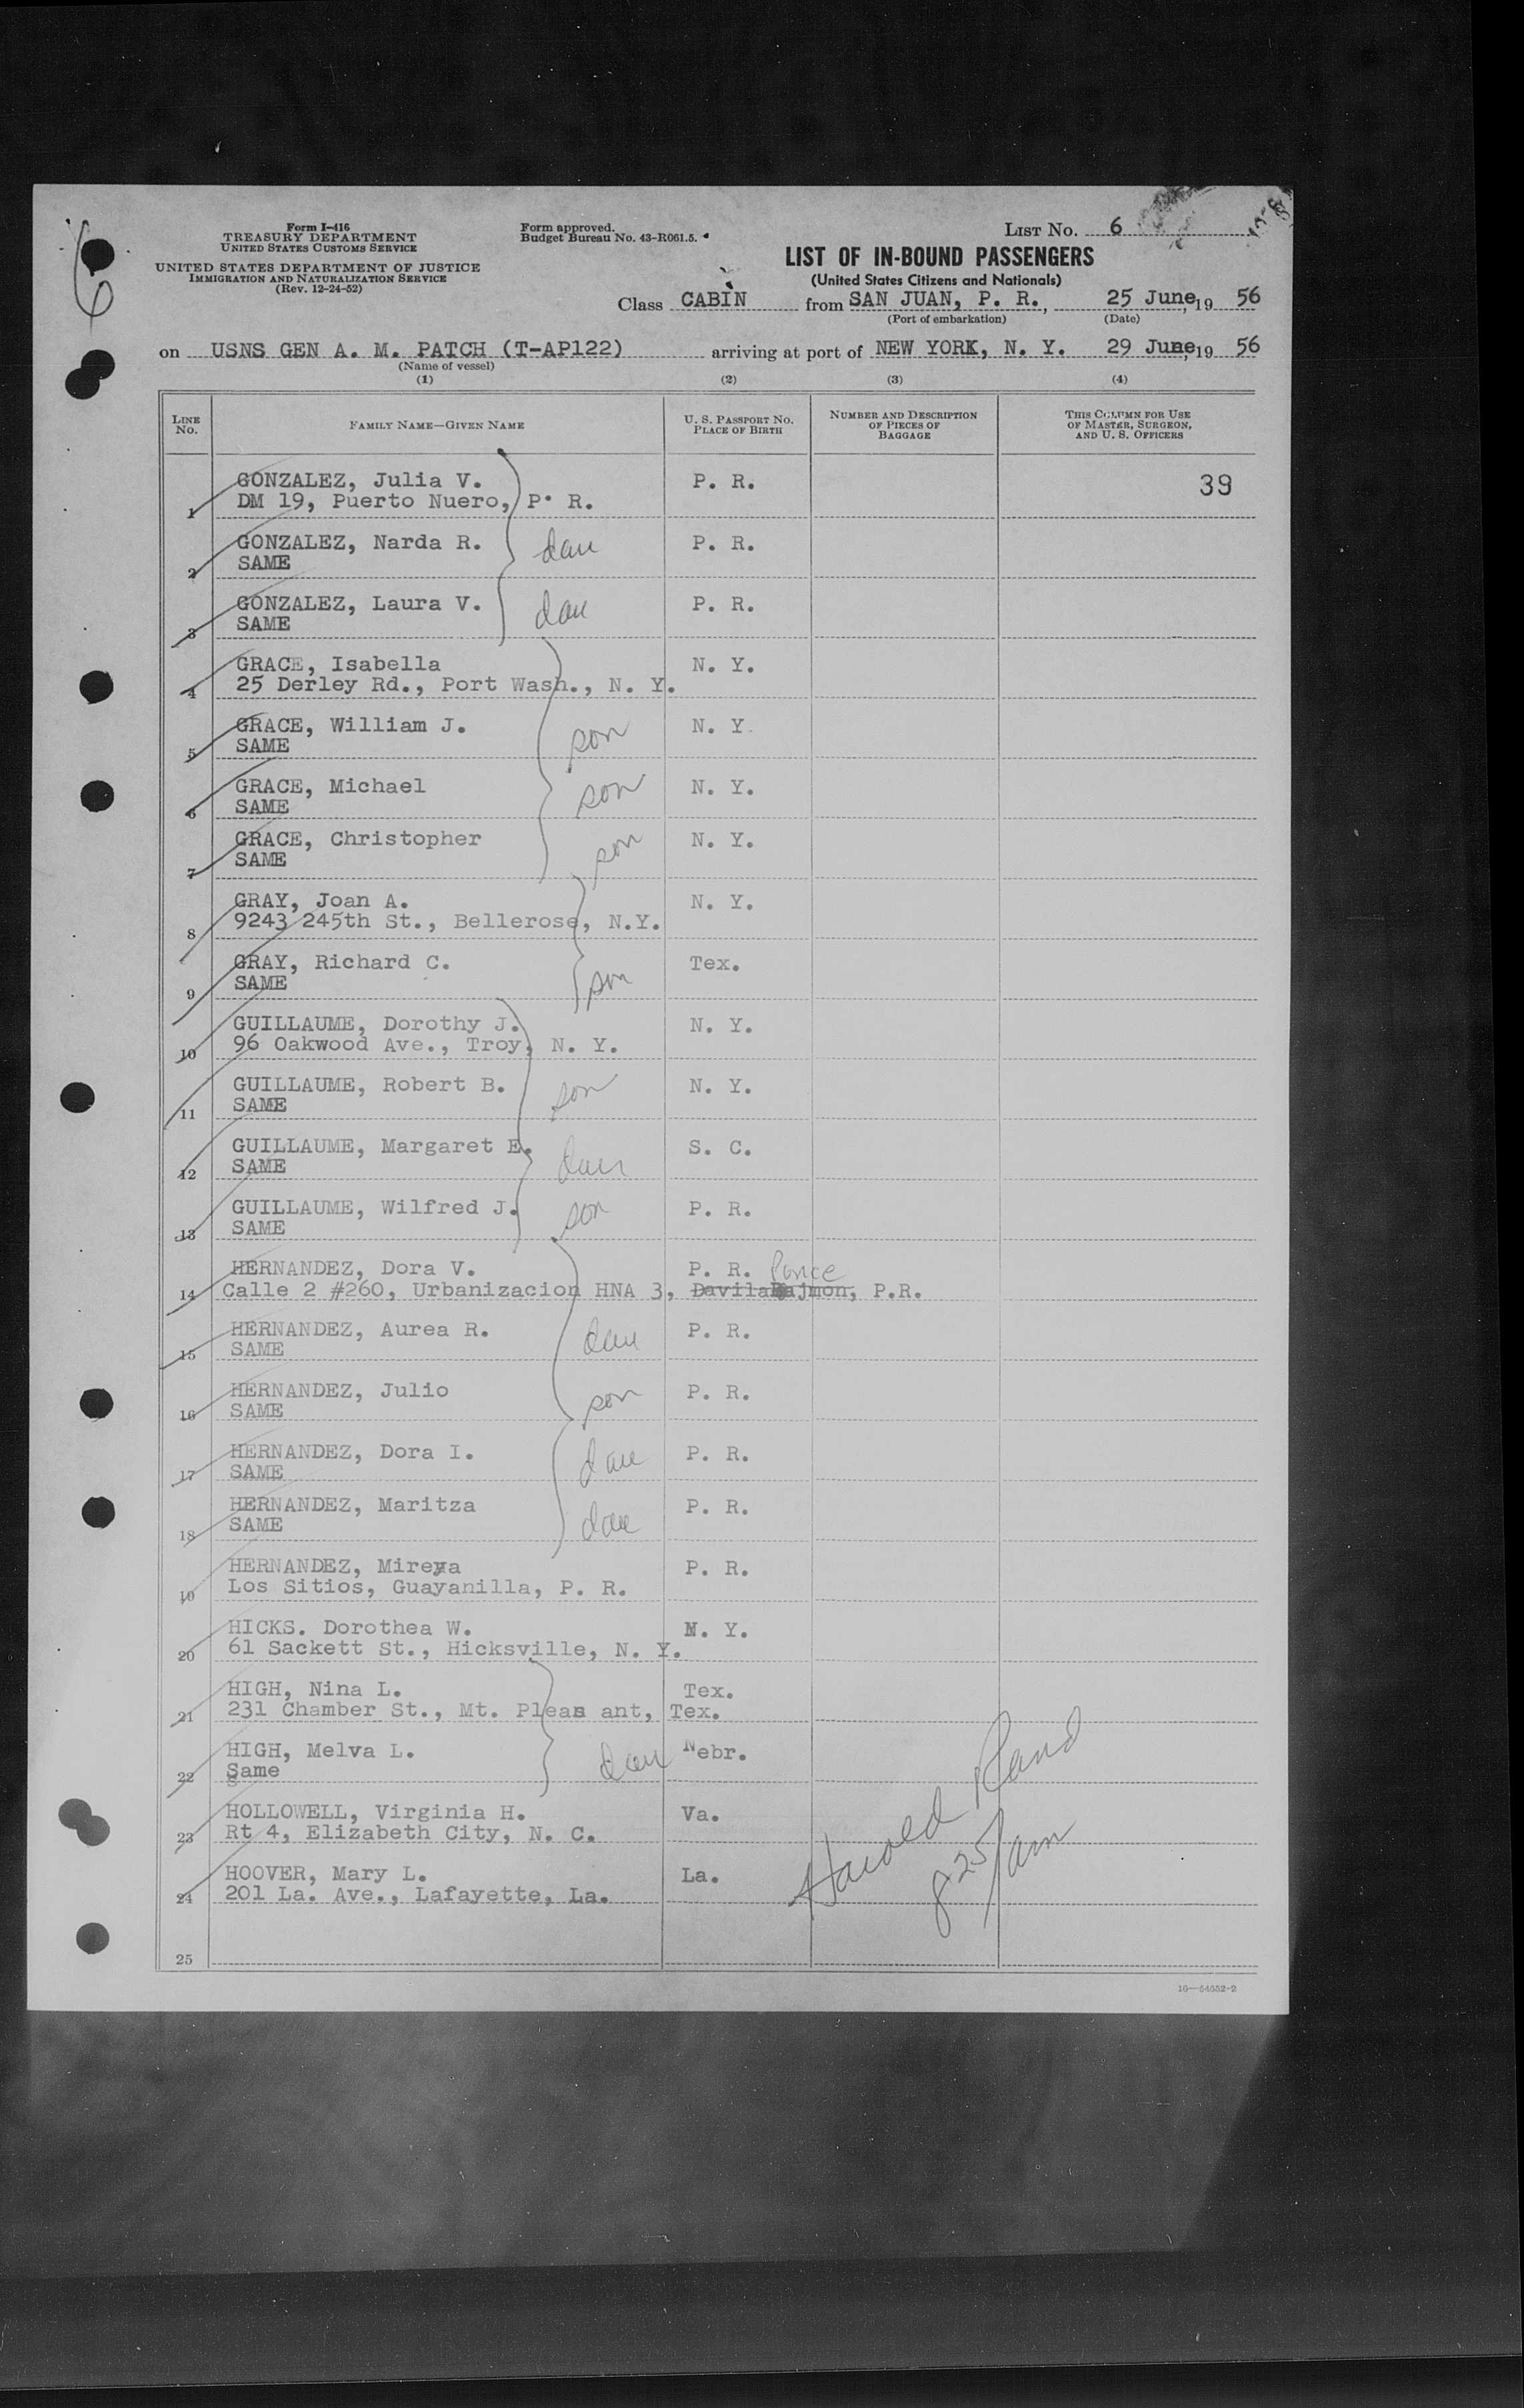 Form I-416
TREASURY DEPARTMENT
UNITED STATES CUSTOMS SERVICE
UNITED STATES DEPARTMENT OF JUSTICE
IMMIGRATION AND NATURALIZATION SERVICE
(Rev. 12-24-52)
Form approved.
Budget Bureau No. 43-R061.5.
LIST No. 6
LIST OF IN-BOUND PASSENGERS
(United States Citizens and Nationals)
Class CABIN from SAN JUAN, P. R., 25 June, 19 56
(Port of embarkation) (Date)
on USNS GEN A. M. PATCH (T-AP122) arriving at port of NEW YORK, N. Y. 29 June, 19 56
(Name of vessel)
(1) (2) (3) (4)
LINE No. FAMILY NAME—GIVEN NAME U. S. PASSPORT No. PLACE OF BIRTH NUMBER AND DESCRIPTION OF PIECES OF BAGGAGE THIS COLUMN FOR USE OF MASTER, SURGEON, AND U. S. OFFICERS
GONZALEZ, Julia V. P. R. 39
1 DM 19, Puerto Nuero, P. R.
GONZALEZ, Narda R. dau P. R.
2 SAME
GONZALEZ, Laura V. dau P. R.
3 SAME
GRACE, Isabella N. Y.
4 25 Derley Rd., Port Wash., N. Y.
GRACE, William J. son N. Y.
5 SAME
GRACE, Michael son N. Y.
6 SAME
GRACE, Christopher son N. Y.
7 SAME
GRAY, Joan A. N. Y.
8 9243 245th St., Bellerose, N.Y.
GRAY, Richard C. son Tex.
9 SAME
GUILLAUME, Dorothy J. N. Y.
10 96 Oakwood Ave., Troy, N. Y.
GUILLAUME, Robert B. son N. Y.
11 SAME
GUILLAUME, Margaret E. dau S. C.
12 SAME
GUILLAUME, Wilfred J. son P. R.
13 SAME
HERNANDEZ, Dora V. P. R. Ponce
14 Calle 2 #260, Urbanizacion HNA 3, Davila Bajmon, P.R.
HERNANDEZ, Aurea R. dau P. R.
15 SAME
HERNANDEZ, Julio son P. R.
16 SAME
HERNANDEZ, Dora I. dau P. R.
17 SAME
HERNANDEZ, Maritza dau P. R.
18 SAME
HERNANDEZ, Mireya P. R.
19 Los Sitios, Guayanilla, P. R.
HICKS. Dorothea W. N. Y.
20 61 Sackett St., Hicksville, N. Y.
HIGH, Nina L. Tex.
21 231 Chamber St., Mt. Pleas ant, Tex.
HIGH, Melva L. dau Nebr.
22 Same
HOLLOWELL, Virginia H. Va.
23 Rt 4, Elizabeth City, N. C.
HOOVER, Mary L. La.
24 201 La. Ave., Lafayette, La.
Harold Rand
825/am
25
16—54652-2